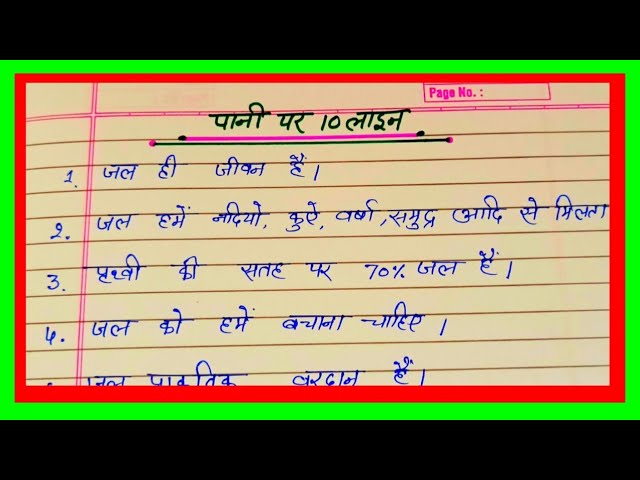 Page No. :
पानी पर 10 लाइन
1. जल ही जीवन हैं।
2. जल हमें नदियो, कुऐ, वर्षा, समुद्र आदि से मिलता
3. पृथ्वी की सतह पर 70% जल हैं।
4. जल को हमें बचाना चाहिए।
जल प्राकृतिक वरदान हैं।